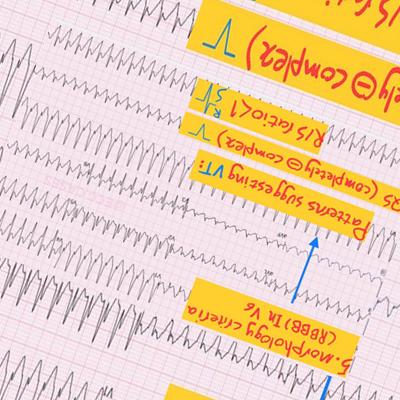 5. morphology criteria
(RBBB) In V6
Patterns suggesting VT:
QS (completely ⊖ complex)
R/S ratio<1
ely ⊖ complex)
R/S rati